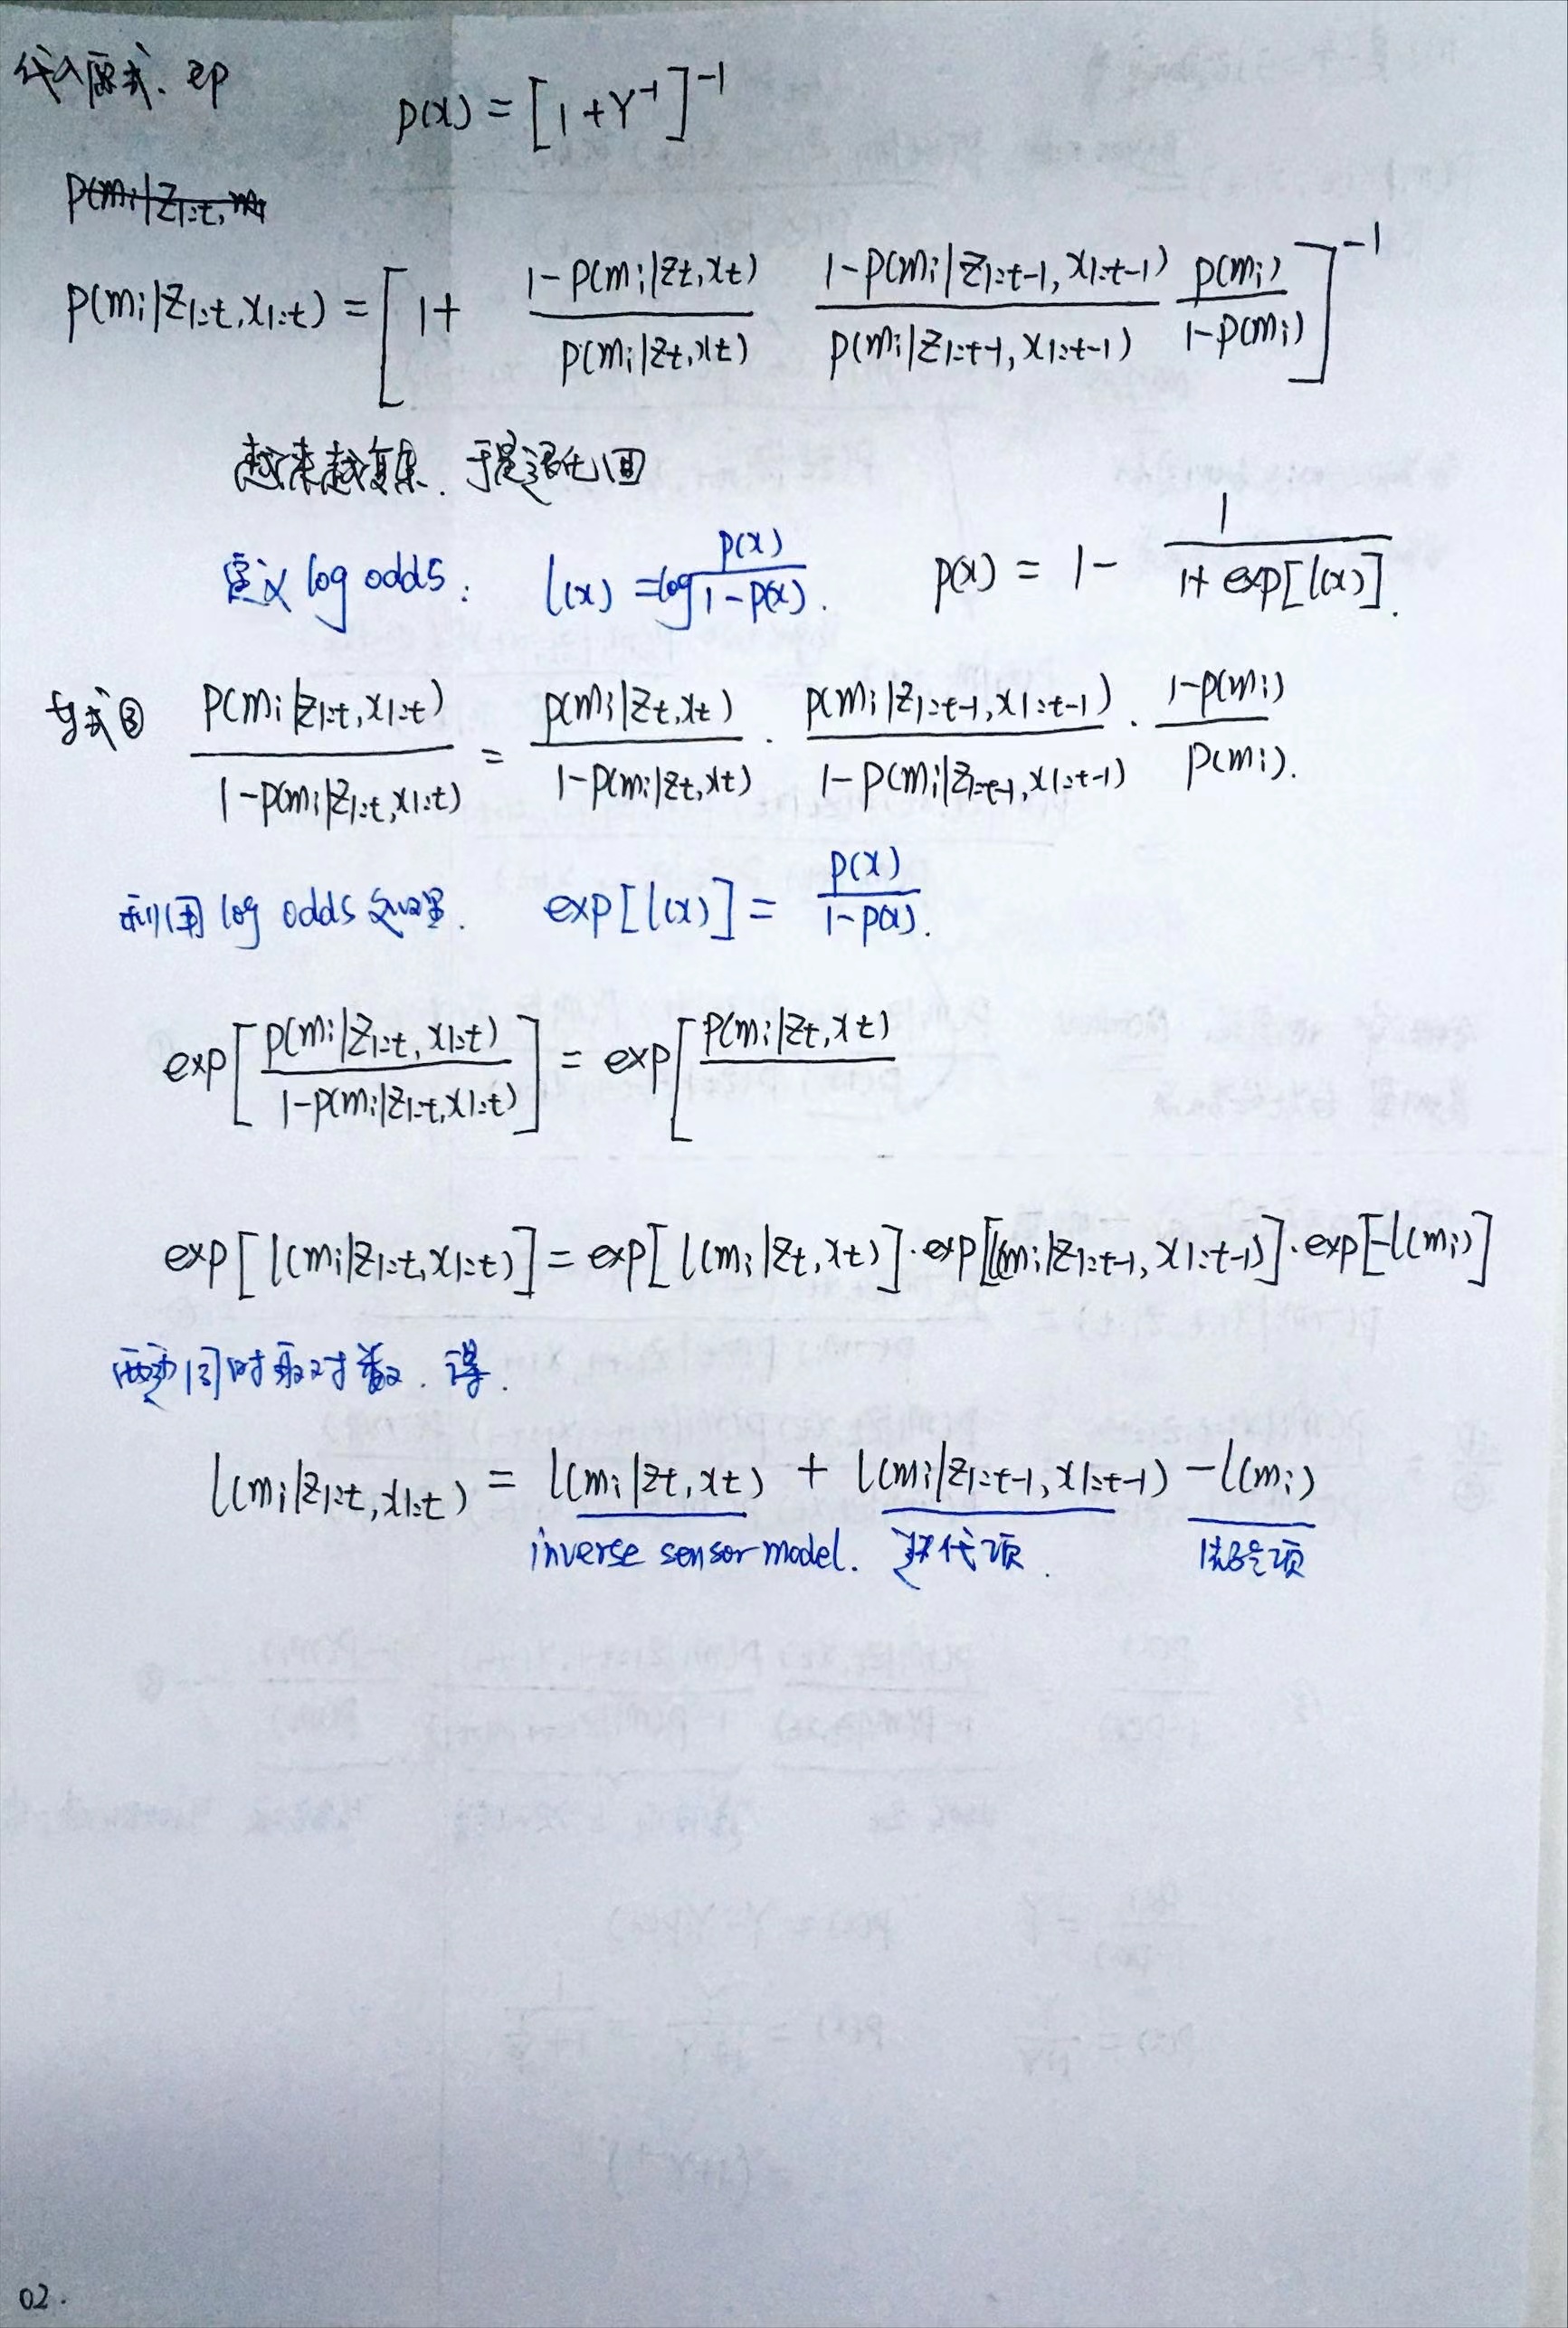 代入原式.即
p(x) = [1+Y⁻¹]⁻¹
p(mᵢ|z₁:t, m
p(mᵢ|z₁:t,x₁:t) = [1+ \frac{1-p(mᵢ|zt,xt)}{p(mᵢ|zt,xt)} \frac{1-p(mᵢ|z₁:t-1,x₁:t-1)}{p(mᵢ|z₁:t-1,x₁:t-1)} \frac{p(mᵢ)}{1-p(mᵢ)}]⁻¹
越来越复杂.于是
定义 log odds: l(x) = log \frac{p(x)}{1-p(x)}. p(x) = 1- \frac{1}{1+ exp[l(x)]}.
与式③ \frac{p(mᵢ|z₁:t,x₁:t)}{1-p(mᵢ|z₁:t,x₁:t)} = \frac{p(mᵢ|zt,xt)}{1-p(mᵢ|zt,xt)} · \frac{p(mᵢ|z₁:t-1,x₁:t-1)}{1-p(mᵢ|z₁:t-1,x₁:t-1)} · \frac{1-p(mᵢ)}{p(mᵢ)}.
利用 log odds 处理. exp[l(x)] = \frac{p(x)}{1-p(x)}.
exp[\frac{p(mᵢ|z₁:t,x₁:t)}{1-p(mᵢ|z₁:t,x₁:t)}] = exp[\frac{p(mᵢ|zt,xt)}{}
exp[l(mᵢ|z₁:t,x₁:t)] = exp[l(mᵢ|zt,xt)]·exp[l(mᵢ|z₁:t-1,x₁:t-1)]·exp[-l(mᵢ)]
两边同时取对数.得.
l(mᵢ|z₁:t,x₁:t) = l(mᵢ|zt,xt) + l(mᵢ|z₁:t-1,x₁:t-1) -l(mᵢ)
inverse sensor model. 迭代项. 先验项
02.